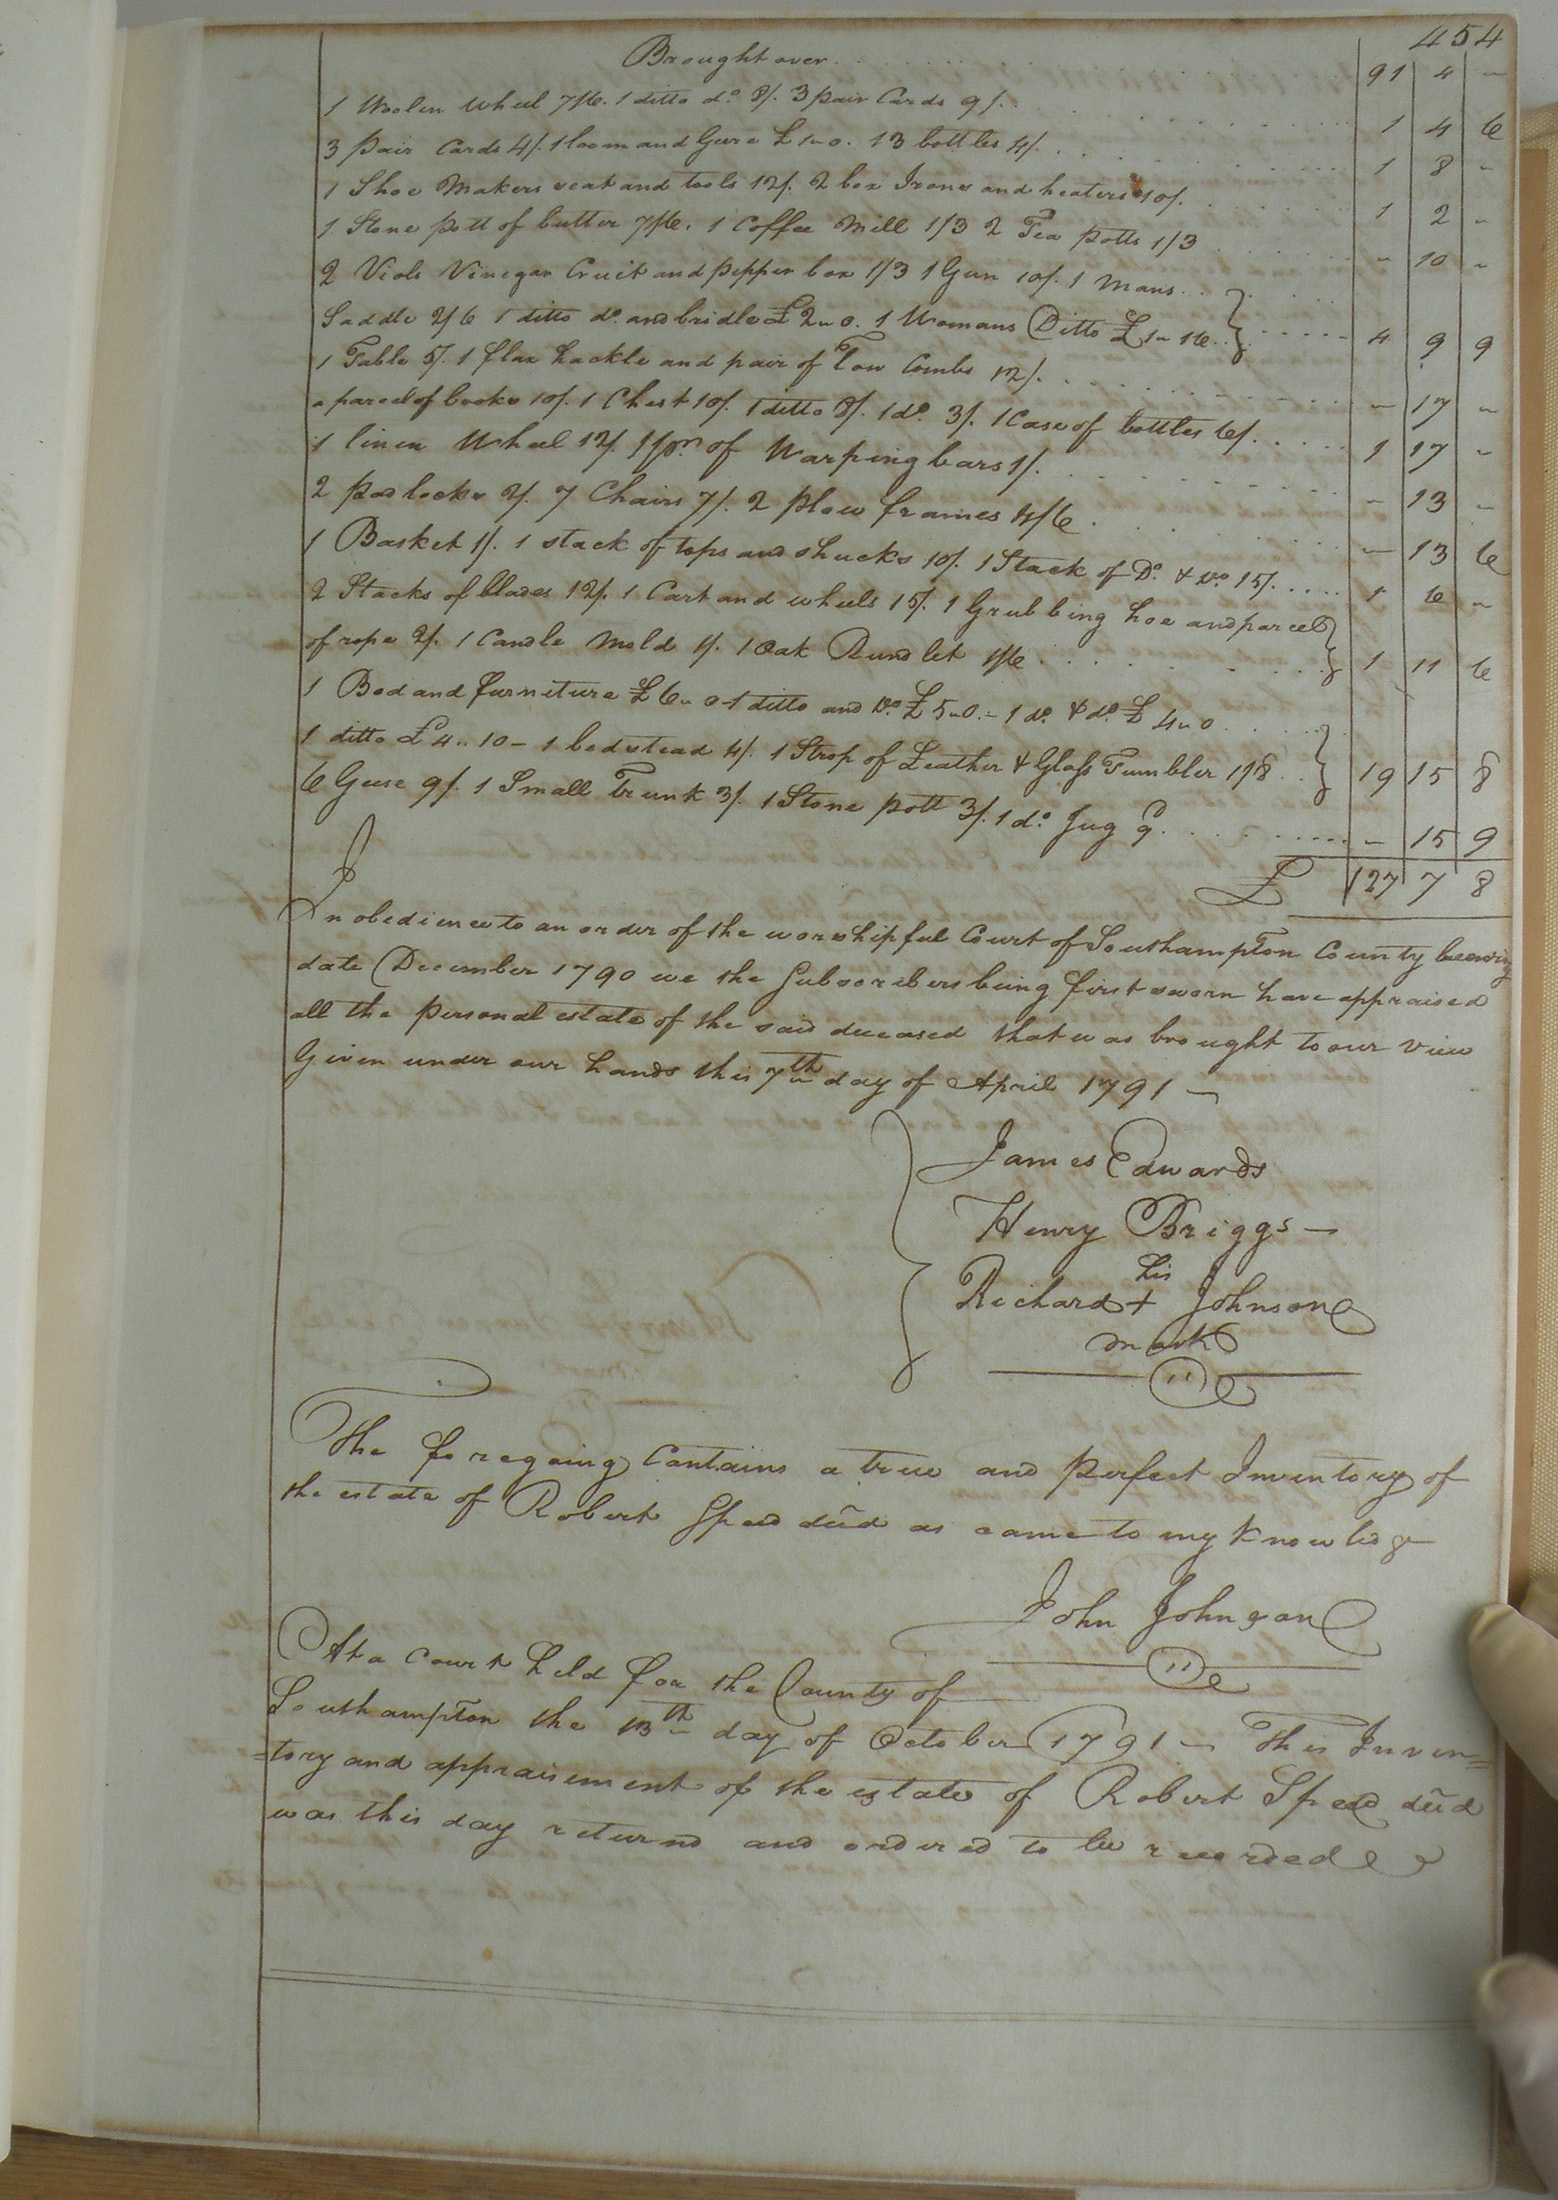 454
Brought over 91 4 -
1 Woolen Wheel 7/6. 1 ditto do. 8/. 3 pair Cards 9/. 1 4 6
3 pair Cards 4/. 1 loom and Geere £1-0. 13 bottles 4/. 1 8 -
1 Shoe Makers seat and tools 12/. 2 box Irons and heaters 10/. 1 2 -
1 Stone pott of butter 7/6. 1 Coffee Mill 1/3 2 Tea potts 1/3 - 10 -
2 Viols Vinegar Cruit and pepper box 1/3 1 Gun 10/. 1 Mans
Saddle 2/6 1 ditto do. and bridle £2-0. 1 Womans Ditto £1-16. 4 9 9
1 Table 5/. 1 flax hackle and pair of Tow Combs 12/. - 17 -
a parcel of books 10/. 1 Chest 10/. 1 ditto 8/. 1 do. 3/. 1 Case of bottles 6/. 1 17 -
1 linen Wheel 12/. 1 pr. of Warping bars 1/. - 13 -
2 padlocks 2/. 7 Chairs 7/. 2 plow frames 4/6 - 13 6
1 Basket 1/. 1 stack of tops and shucks 10/. 1 Stack of Do. & do. 15/. 1 6 -
2 Stacks of blades 12/. 1 Cart and wheels 15/. 1 Grubbing hoe and parcel
of rope 2/. 1 Candle Mold 1/. 1 Oak Rundlet 1/6 1 11 6
1 Bed and furniture £6-0-1 ditto and do. £5-0.-1 do. & do. £4-0
1 ditto £4..10-1 bedstead 4/. 1 Strop of Leather & Glass Tumbler 1/8 19 15 8
6 Geese 9/. 1 Small Trunk 3/. 1 Stone pott 3/. 1 do. Jug 9d. - 15 9
£ 127 7 8
In obedience to an order of the worshipful Court of Southampton County bearing
date December 1790 we the Subscribers being first sworn have appraised
all the personal estate of the said deceased that was brought to our view
Given under our hands this 7th day of April 1791 -
James Edwards
Henry Briggs -
his
Richard + Johnson
mark
The foregoing Contains a true and perfect Inventory of
the estate of Robert Speed decd as came to my knowledge
John Johnson
At a Court held for the County of
Southampton the 13th day of October 1791 - This Inven=
=tory and appraisement of the estate of Robert Speed decd
was this day returnd and ordered to be recorded